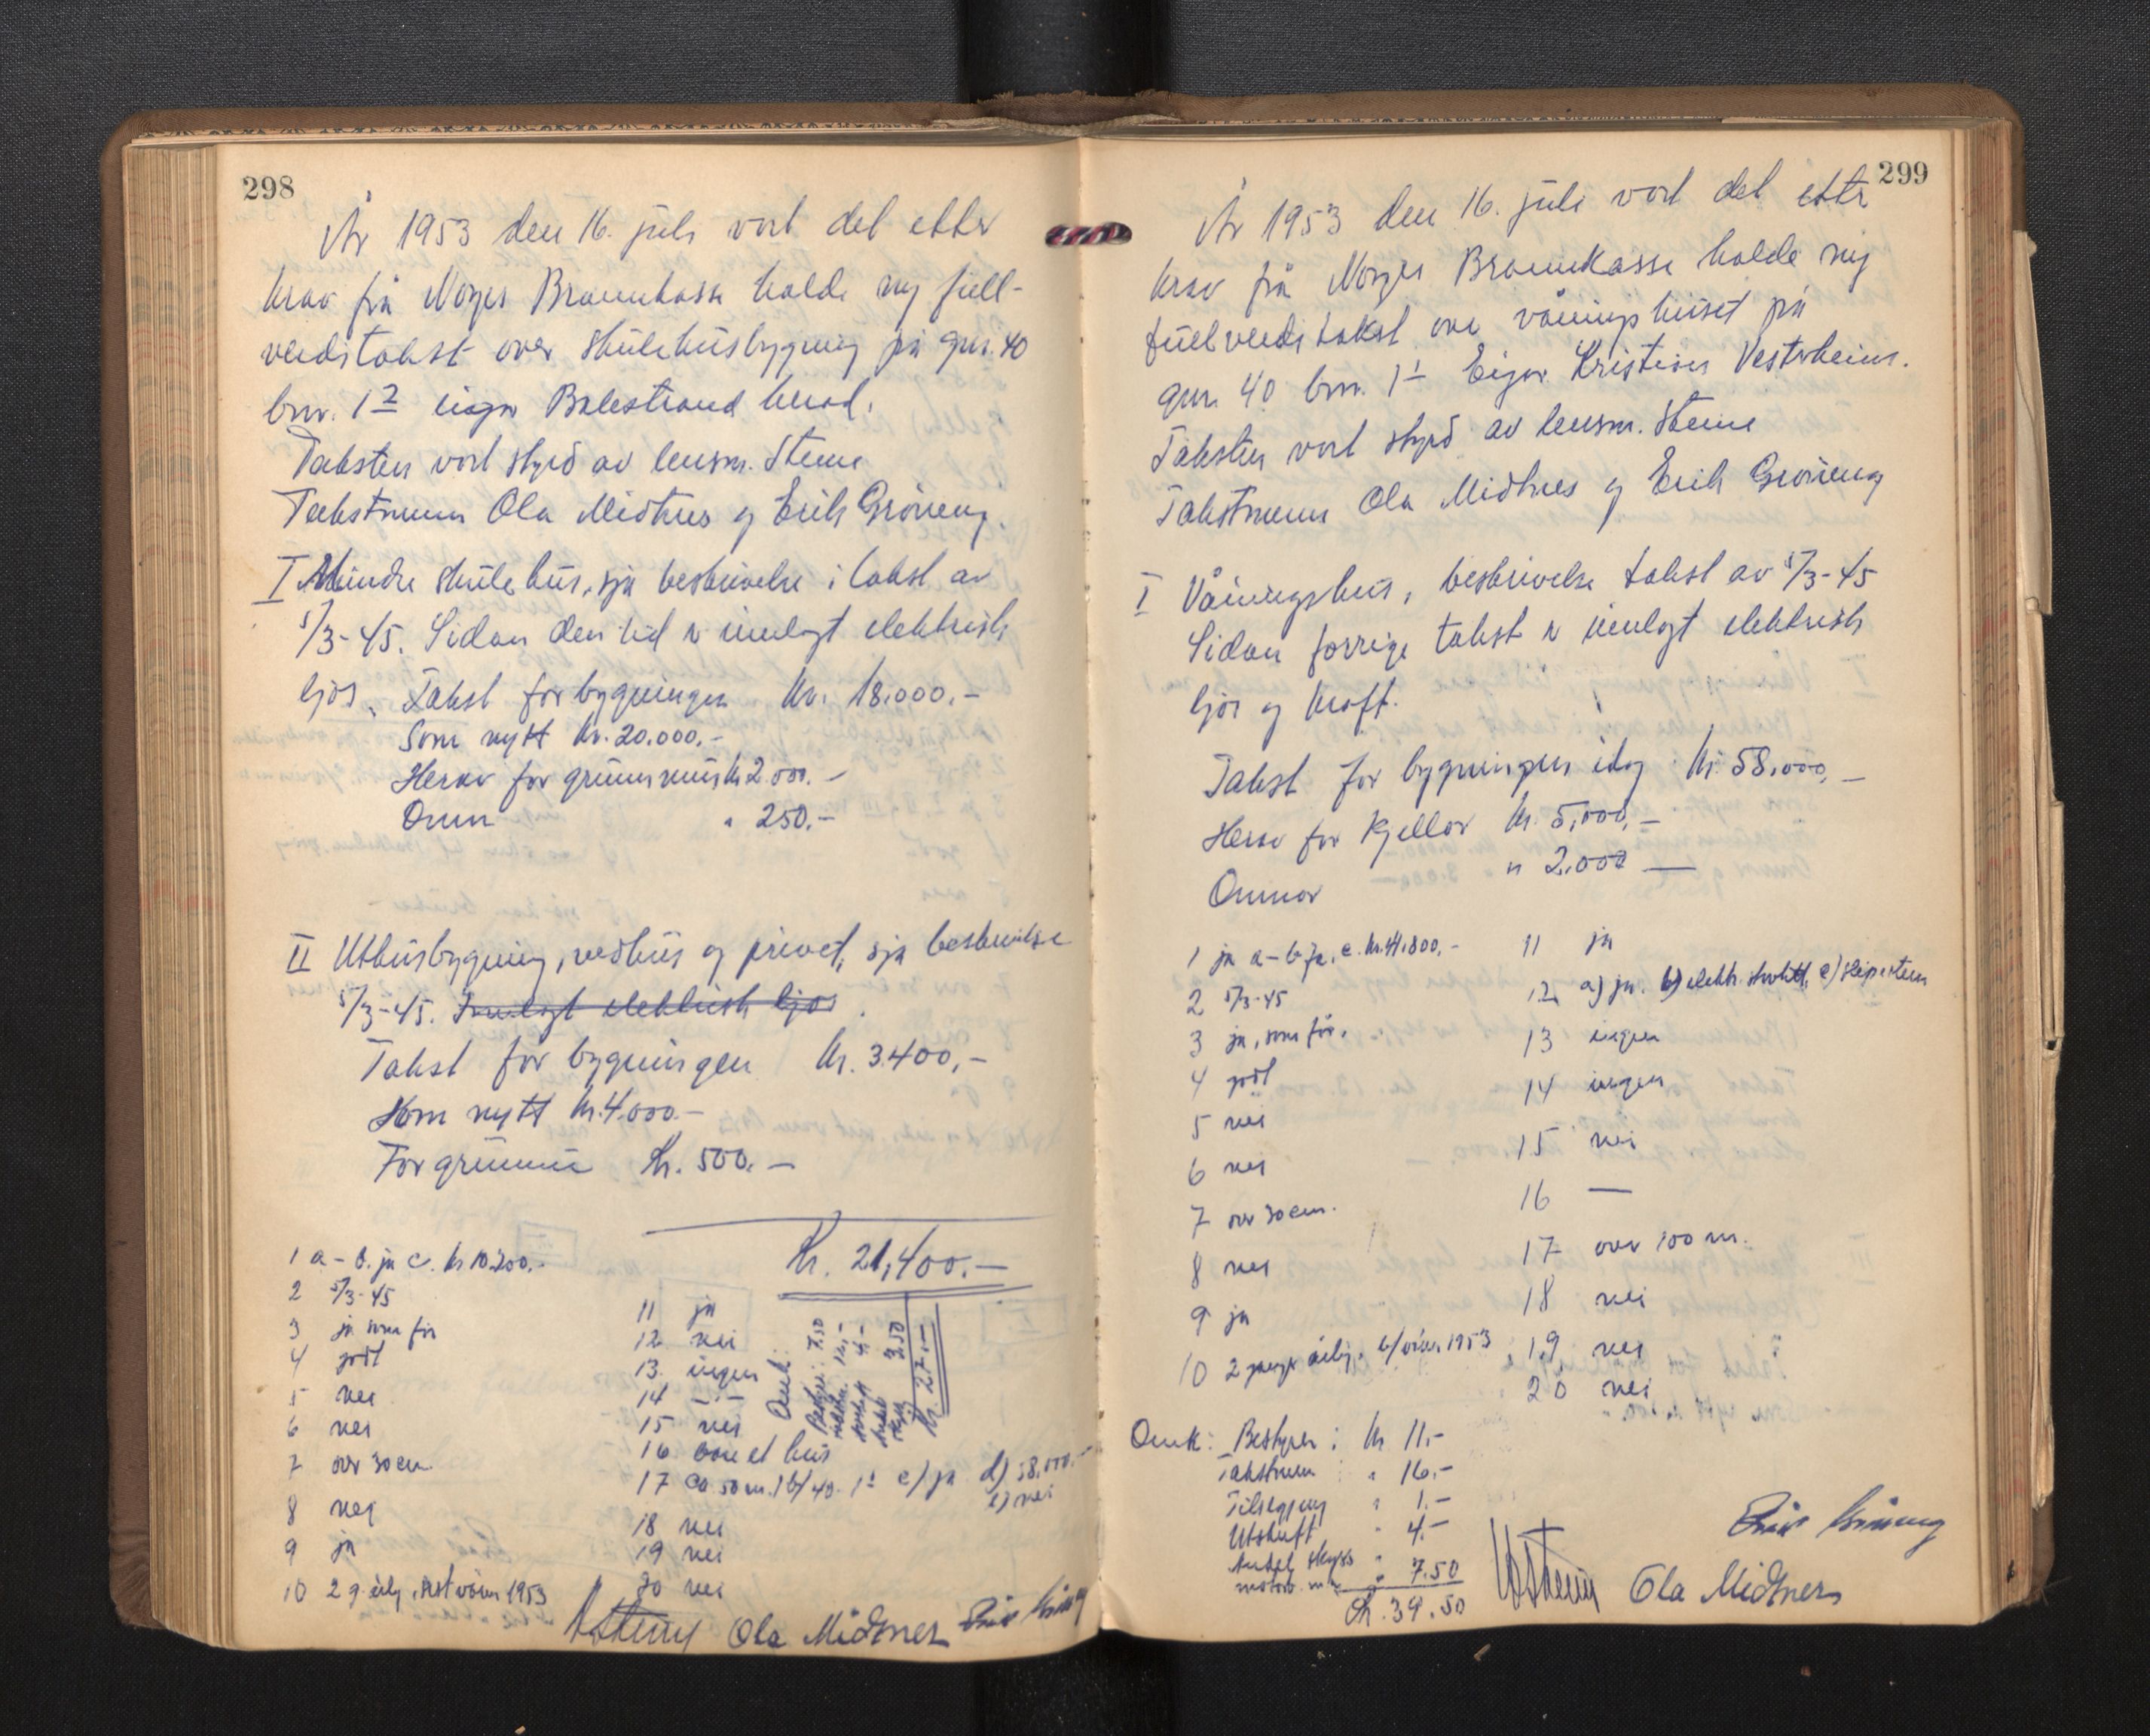 298
År 1953 den 16. juli vart det etter
krav frå Norges Brannkasse halde ny full-
verdstakst over skulehusbygning på gnr. 40
bnr. 1² eigar Balestrand herad.
Taksten vart styrd av lensm. Steine
Takstmenn Ola Midtnes og Erik Grøneng.
I Mindre skulehus, sjå beskrivelse i takst av
5/3-45. Sidan den tid er innlagt elektrisk
ljos. Takst for bygningen kr. 18.000.-
Som nytt kr. 20.000.-
Herav for grunnmur kr 2.000.-
Omn " 250.-
II Uthusbygning, vedhus og privet, sjå beskrivelse
5/3-45. Innlagt elektrisk ljos.
Takst for bygningen kr. 3.400,-
Som nytt kr. 4.000.-
For grunnmur kr. 500.-
Kr. 21,400.-
1 a - b. ja c. kr 10.200.-
2 5/3-45
3 ja som før
4 godt
5 nei
6 nei
7 over 30 cm
8 nei
9 ja
10 2 g. årlg. sist våren 1953
11 ja
12 nei
13. ingen
14 -.-
15 nei
16 bare et hus
17 ca 50 m. b) 40. 1¹ c) ja d) 58,000.-
e) nei
18 nei
19 nei
20 nei
Omk:
Bestyrer: 7.50
4.-
3.50
Kr. 27.-
Ola Midtnes
299
År 1953 den 16. juli vart det etter
krav frå Norges Brannkasse halde ny
fullverdstakst over våningshuset på
gnr. 40 bnr. 1¹ Eigar Kristian Vesterheim.
Taksten vart styrd av lensm. Steine
Takstmenn Ola Midtnes og Erik Grøneng
I Våningshus, beskrivelse takst av 5/3-45
Sidan forrige takst er innlagt elektrisk
ljos og kraft.
Takst for bygningen idag kr. 58.000.-
Herav for kjellar kr. 5,000,-
Omnar " 2.000 —
1 ja a - b ja, c. kr. 41.800.-
2 5/3-45
3 ja, som før.
4 godt
5 nei
6 nei
7 over 30 cm.
8 nei
9 ja
10 2 ganger årlig. b) våren 1953
11 ja
12 a) ja. b) elektr. c)
13 ingen
14 ingen
15 nei
16 —
17 over 100 m.
18 nei
19 nei
20 nei
Omk: Bestyrer: kr 11.-
Takstmenn " 16.-
Tilsegjing " 1.-
Utskrift " 4.-
Andel skyss
motorb. m.m. " 7.50
Kr. 39.50
Ola Midtnes